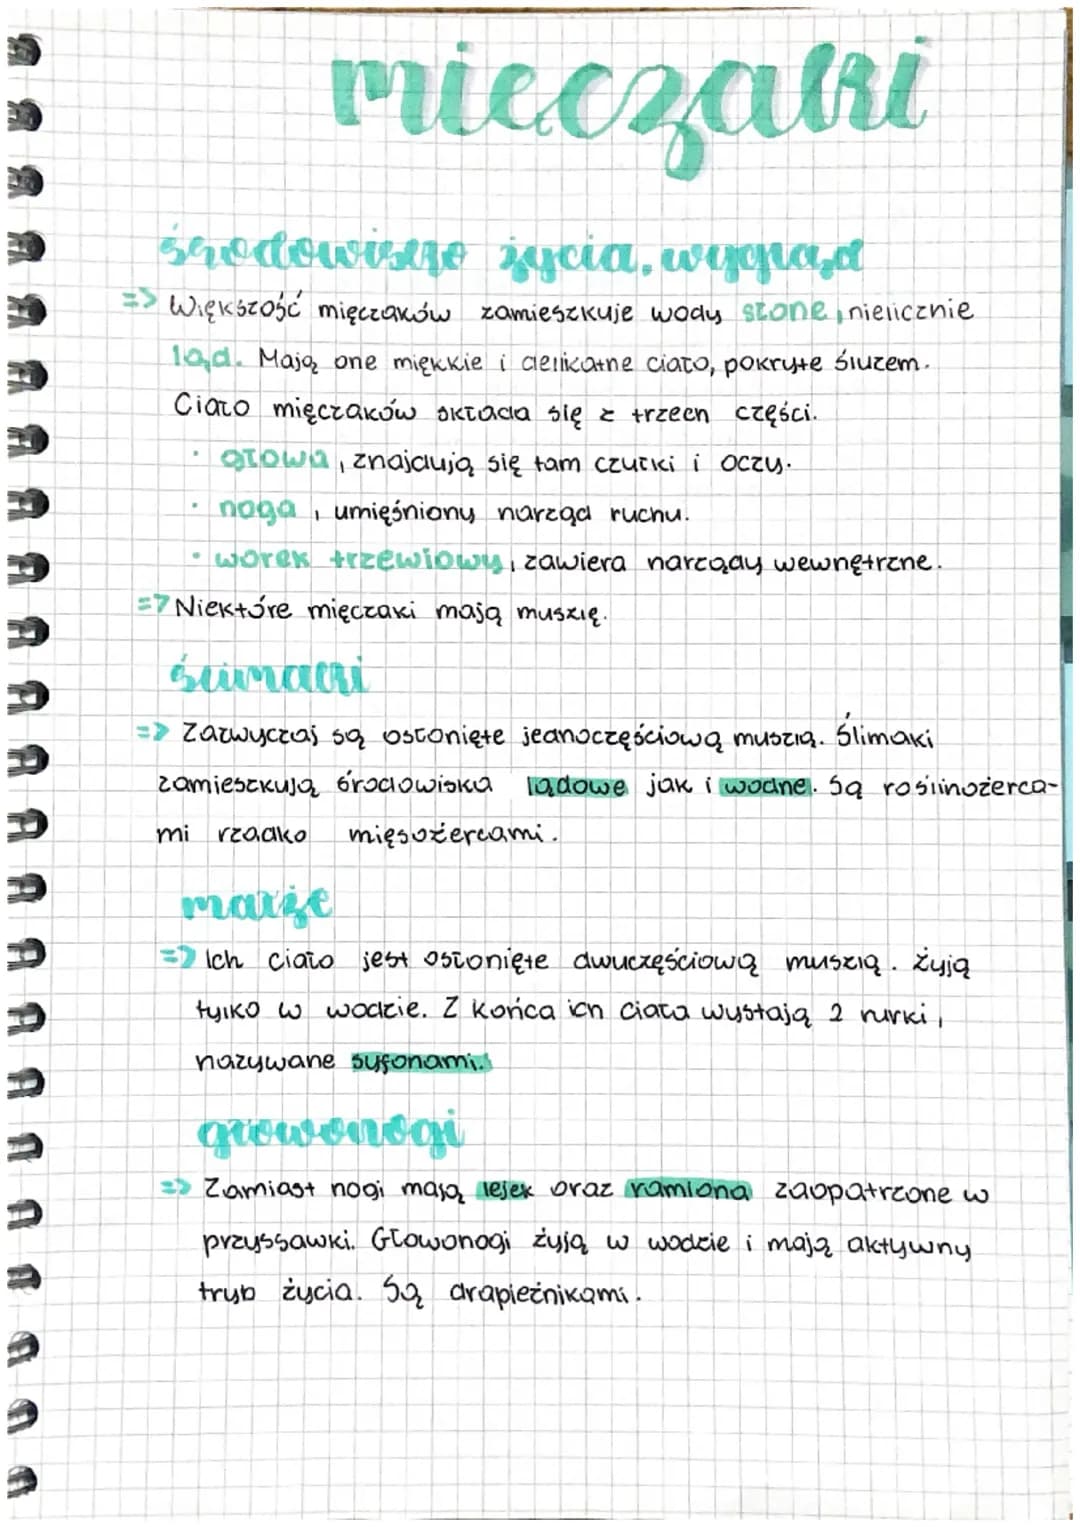 mięczaki
środowisko życia, wygląd
=> Większość mięczaków zamieszkuje wody słone, nielicznie
ląd. Mają one miękkie i delikatne ciało, pokryte śluzem.
Ciało mięczaków składa się z trzech części.
· głowa, znajdują się tam czułki i oczy.
· noga, umięśniony narząd ruchu.
· worek trzewiowy, zawiera narządy wewnętrzne.
=> Niektóre mięczaki mają muszlę.
ślimaki
=> Zazwyczaj są osłonięte jednoczęściową muszlą. Ślimaki
zamieszkują środowiska lądowe jak i wodne. Są roślinożerca-
mi rzadko mięsożercami.
małże
=> Ich ciało jest osłonięte dwuczęściową muszlą. Żyją
tylko w wodzie. Z końca ich ciała wystają 2 rurki,
nazywane syfonami.
głowonogi
=> Zamiast nogi mają lejek oraz ramiona zaopatrzone w
przyssawki. Głowonogi żyją w wodzie i mają aktywny
tryb życia. Są drapieżnikami.